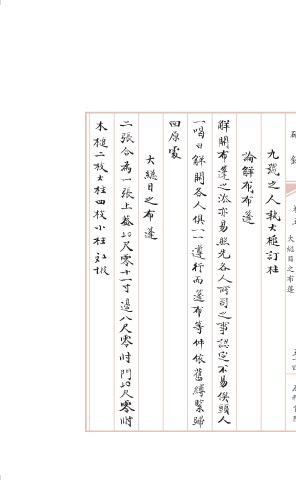 九號之人執大槌訂柱
論解布布蓬
解開布蓬之法亦易照先各人所司之事認定不易俟頭人
一喝曰解開各人俱一一遵行而蓬布等件依舊縛緊歸
回原處
大總目之布蓬
二張合為一張上蓋
尺零十一寸邊八尺零
門
尺零
木槌二枚大柱四枚小柱
大總目之布蓬